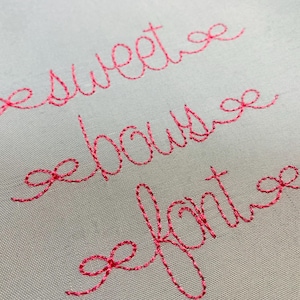 sweet
bows
font